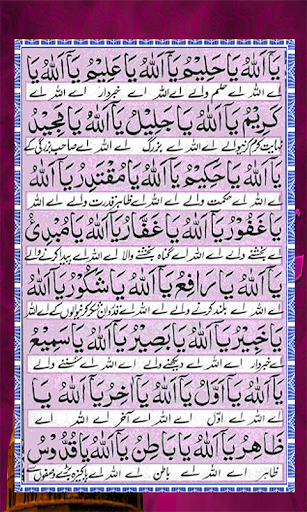 يَآ اَللهُ يَا حَلِيْمُ يَآ اَللهُ يَا عَلِيْمُ يَآ اَللهُ يَا
اے اللہ اے حلم والے اے اللہ اے خبردار اے اللہ اے
كَرِيْمُ يَآ اَللهُ يَا جَلِيْلُ يَآ اَللهُ يَا مَجِيْدُ
نہایت کرم کرنیوالے اے اللہ اے بزرگ اے اللہ اے صاحب بزرگی کے
يَآ اَللهُ يَا حَكِيْمُ يَآ اَللهُ يَا مُقْتَدِرُ يَآ اَللهُ
اے اللہ اے حکمت والے اے اللہ اے ظاہر قدرت والے اے اللہ
يَا غَفُوْرُ يَآ اَللهُ يَا غَفَّارُ يَآ اَللهُ يَا مُبْدِئُ
اے بخشنے والے اے اللہ اے گناہ بخشنے والا اے اللہ اے پیدا کرنے والے
يَآ اَللهُ يَا رَافِعُ يَآ اَللهُ يَا شَكُوْرُ يَآ اَللهُ
اے اللہ اے بلند کرنے والے اے اللہ اے قدردان شکر کرنیوالوں کے اے اللہ
يَا خَبِيْرُ يَآ اَللهُ يَا بَصِيْرُ يَآ اَللهُ يَا سَمِيْعُ
اے خبردار اے اللہ اے دیکھنے والے اے اللہ اے سننے والے
يَآ اَللهُ يَا اَوَّلُ يَآ اَللهُ يَا اٰخِرُ يَآ اَللهُ يَا
اے اللہ اے اول اے اللہ اے آخر اے اللہ اے
ظَاهِرُ يَآ اَللهُ يَا بَاطِنُ يَآ اَللهُ يَا قُدُّوْسُ
ظاہر اے اللہ اے باطن اے اللہ اے پاکیزہ